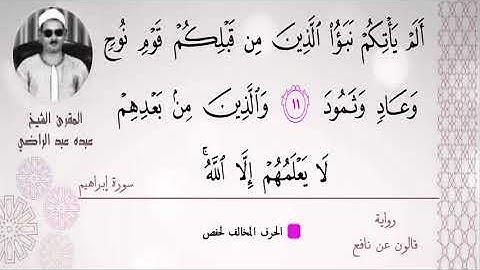 أَلَمْ يَأْتِكُمْ نَبَؤُا۟ اُ۬لذِينَ مِن قَبْلِكُمْ قَوْمِ نُوحٖ
وَعَادٖ وَثَمُودَ ١١ وَالذِينَ مِنۢ بَعْدِهِمْ
لَا يَعْلَمُهُمْ إِلَّا اَ۬للَّهُۖ
المقرئ الشيخ
عبده عبد الراضي
سورة إبراهيم
رواية
قالون عن نافع
الحرف المخالف لحفص